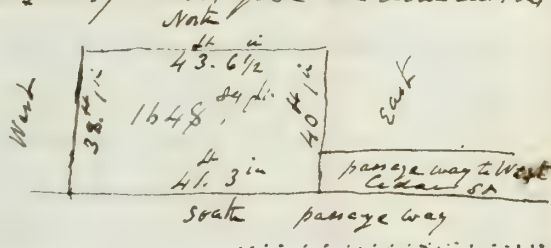 North
ft in
43. 6½
West
38 ft 1 in
1648 sq ft.
40 ft 1 in
East
ft in
41. 3
passage way to West
Cedar St
south passage way